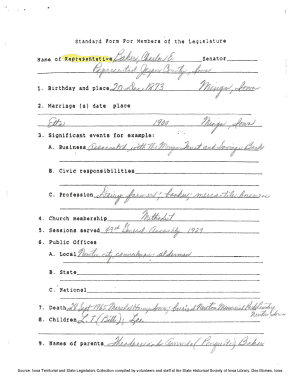 Standard Form For Members of the Legislature
Name of Representative Baker, Charles E. Senator
Represented Jasper County, Iowa
1. Birthday and place 20 Dec 1873 Mingo, Iowa
2. Marriage (s) date place
Etta 1900 Mingo, Iowa
3. Significant events for example:
A. Business Associated with the Mingo Trust and Savings Bank
B. Civic responsibilities
C. Profession Dairy farmer; banker; mercantile business
4. Church membership Methodist
5. Sessions served 43rd General Assembly 1929
6. Public Offices
A. Local Newton city councilman - alderman
B. State
C. National
7. Death 28 Sept 1965 buried Newton Memorial Park Cemetery
Newton Iowa
8. Children L. T. (Bill);
9. Names of parents Theodore and Baker
Source: Iowa Territorial and State Legislators Collection compiled by volunteers and staff at the State Historical Society of Iowa Library, Des Moines, Iowa.